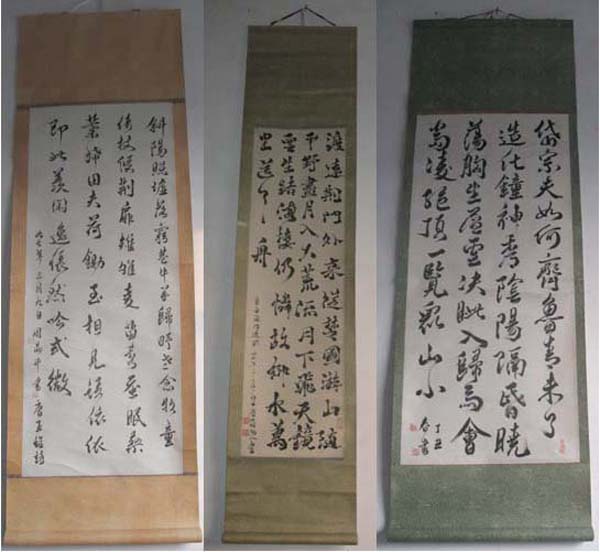 斜陽照墟落窮巷牛羊歸野老念牧童
倚杖候荊扉雉雊麥苗秀蠶眠桑
葉稀田夫荷鋤至相見語依依
即此羨閑逸悵然吟式微
九七年三月九日周書唐王維詩
渡遠荊門外來從楚國遊山隨
平野盡月入大荒流月下飛天鏡
雲生結海樓仍憐故鄉水萬
里送行舟
岱宗夫如何齊魯青未了
造化鐘神秀陰陽隔昏曉
蕩胸生層雲決眥入歸鳥會
當凌絕頂一覽眾山小
丁丑